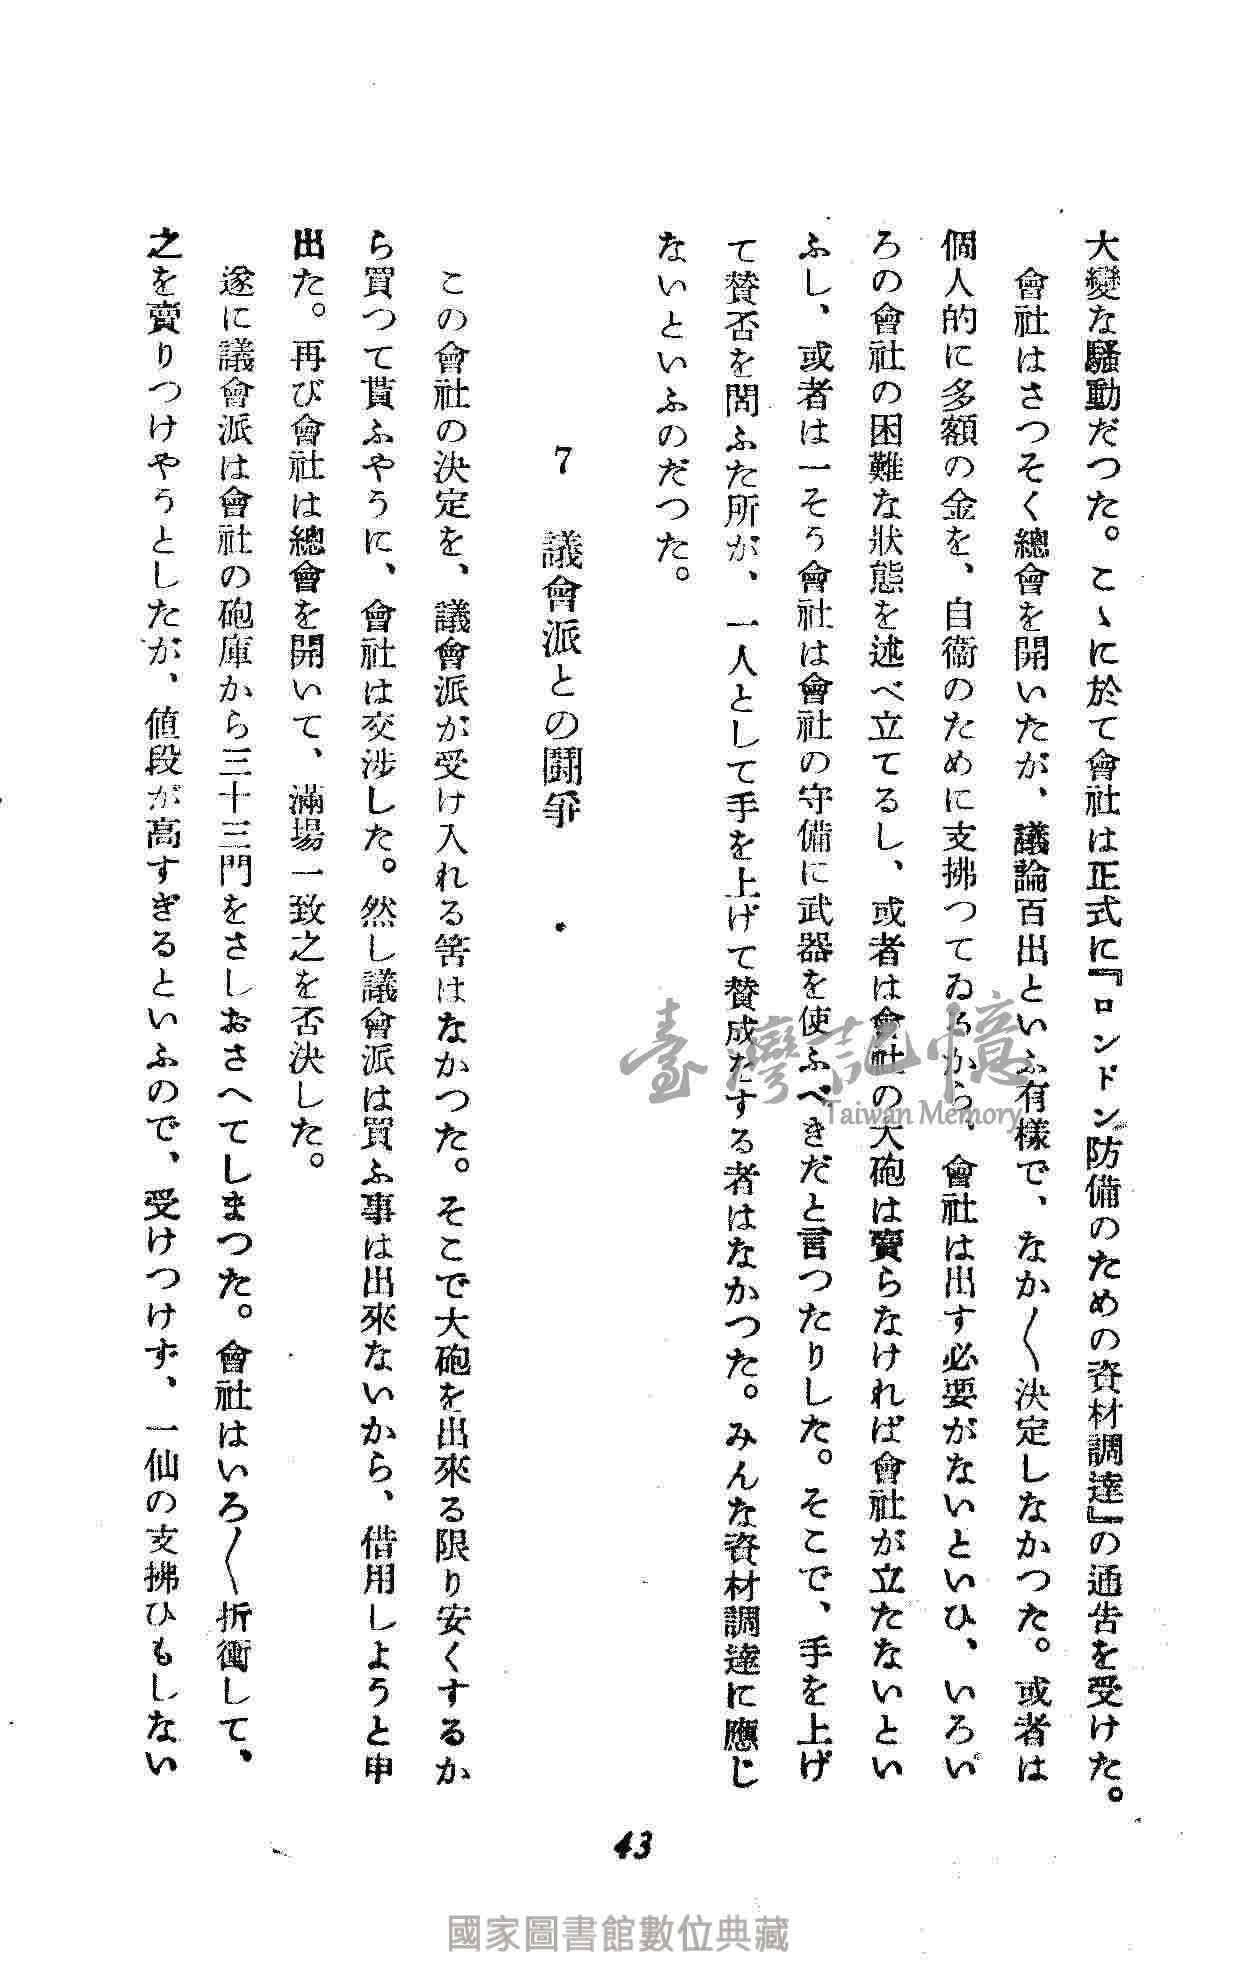 大變な騷動だつた。こゝに於て會社は正式に『ロンドン防備のための資材調達』の通告を受けた。
會社はさつそく總會を開いたが、議論百出といふ有樣で、なか〳〵決定しなかつた。或者は
個人的に多額の金を、自衞のために支拂つてゐるから、會社は出す必要がないといひ、いろい
ろの會社の困難な狀態を述べ立てるし、或者は會社の大砲は賣らなければ會社が立たないとい
ふし、或者は一そう會社は會社の守備に武器を使ふべきだと言つたりした。そこで、手を上げ
て賛否を問ふた所が、一人として手を上げて賛成たする者はなかつた。みんな資材調達に應じ
ないといふのだつた。
7 議會派との鬪爭
この會社の決定を、議會派が受け入れる筈はなかつた。そこで大砲を出來る限り安くするか
ら買つて貰ふやうに、會社は交涉した。然し議會派は買ふ事は出來ないから、借用しようと申
出た。再び會社は總會を開いて、滿場一致之を否決した。
遂に議會派は會社の砲庫から三十三門をさしおさへてしまつた。會社はいろ〳〵折衝して、
之を賣りつけやうとしたが、値段が高すぎるといふので、受けつけず、一仙の支拂ひもしない
43
臺灣記憶
Taiwan Memory
國家圖書館數位典藏